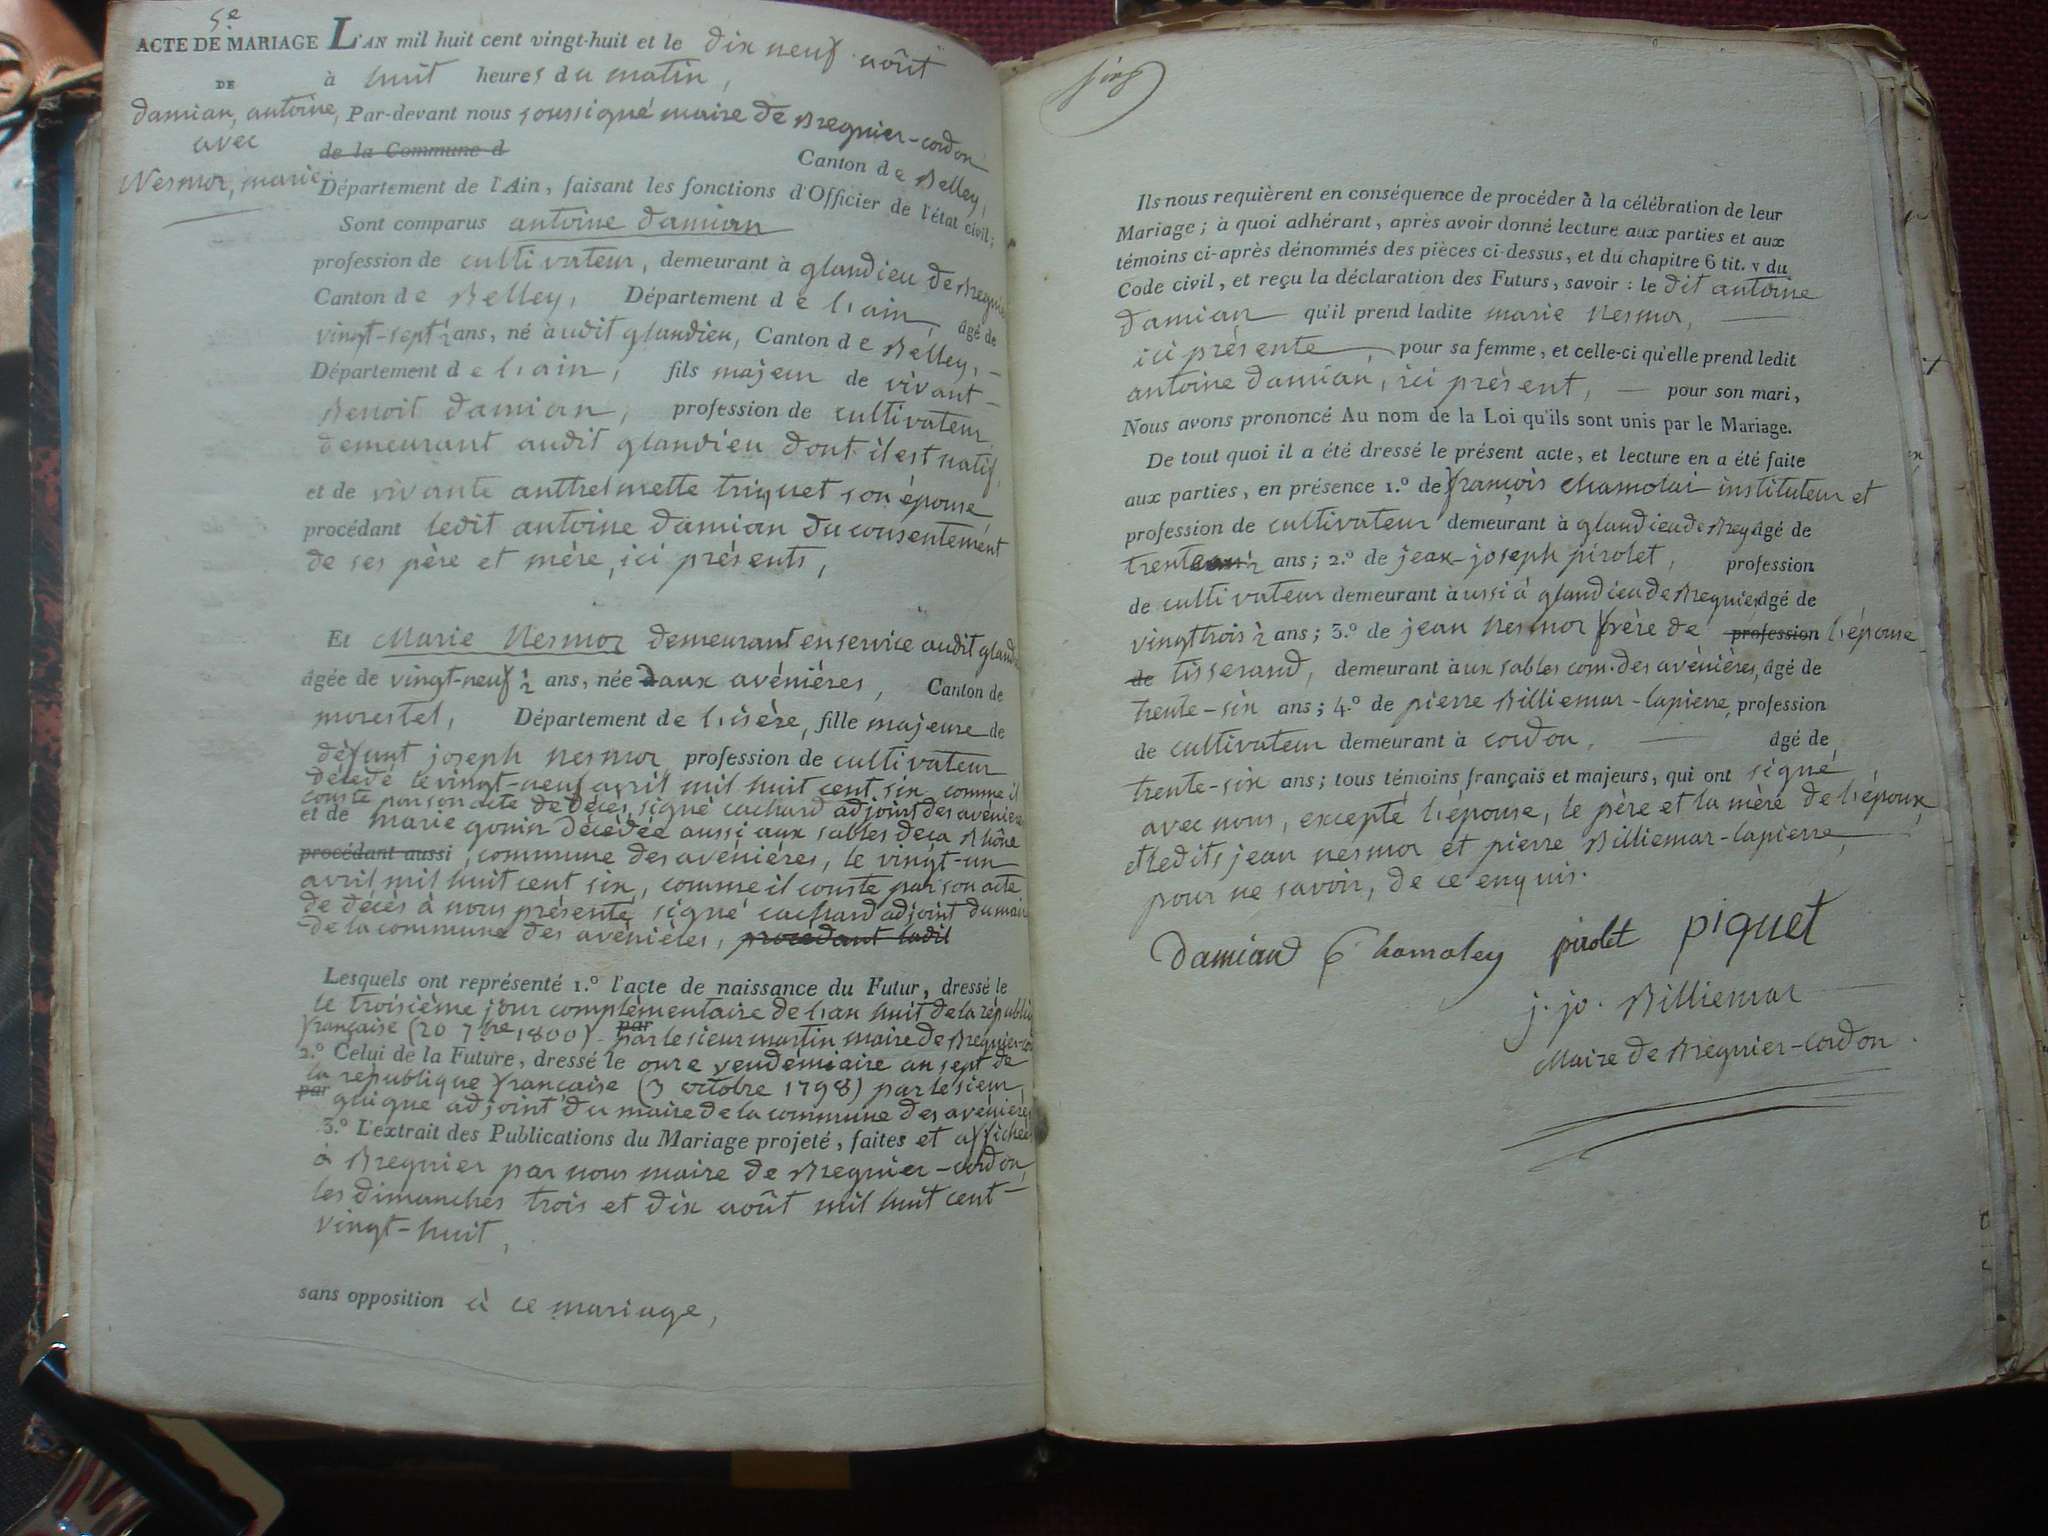 5.e
ACTE DE MARIAGE L'AN mil huit cent vingt-huit et le dix neuf août
DE à huit heures du matin,
damian, antoine, Par-devant nous soussigné maire de Bregnier-cordon
avec de la Commune d Canton de Belley,
Nesmoz, marie. Département de l'Ain, faisant les fonctions d'Officier de l'état civil;
Sont comparus antoine damian
profession de cultivateur, demeurant à glandieu de Bregnier
Canton de Belley, Département de l'ain, âgé de
vingt-sept ½ ans, né audit glandieu, Canton de Belley,
Département de l'ain, fils majeur de vivant
Benoit damian, profession de cultivateur
demeurant audit glandieu dont il est natif,
et de vivante anthelmette triquet son épouse,
procédant ledit antoine damian du consentement
de ses père et mère, ici présents,
Et Marie Nesmoz demeurant en service audit gland
âgée de vingt-neuf ½ ans, née aux avénières, Canton de
morestel, Département de l'isère, fille majeure de
défunt joseph nesmoz profession de cultivateur
décédé le vingt-neuf avril mil huit cent six comme il
conste par son acte de décès, signé cachard adjoint des avénières
et de marie gonin décédée aussi aux sables deça Rhône
procédant aussi, commune des avénières, le vingt-un
avril mil huit cent six, comme il conste par son acte
de décès à nous présenté signé cachard adjoint du maire
de la commune des avénières, procédant ladit
Lesquels ont représenté 1.º l'acte de naissance du Futur, dressé le
le troisième jour complémentaire de l'an huit de la républiq
française (20 7bre 1800) par par le sieur martin maire de Bregnier-co
2.º Celui de la Future, dressé le onze vendémiaire an sept de
la république française (3 octobre 1798) par le sieur
par guigue adjoint du maire de la commune des avénières
3.º L'extrait des Publications du Mariage projeté, faites et affichées
à Bregnier par nous maire de Bregnier-cordon,
les dimanches trois et dix août mil huit cent
vingt-huit,
sans opposition à ce mariage,
Ils nous requièrent en conséquence de procéder à la célébration de leur
Mariage; à quoi adhérant, après avoir donné lecture aux parties et aux
témoins ci-après dénommés des pièces ci-dessus, et du chapitre 6 tit. v du
Code civil, et reçu la déclaration des Futurs, savoir: le dit antoine
damian qu'il prend ladite marie nesmoz,
ici présente, pour sa femme, et celle-ci qu'elle prend ledit
antoine damian, ici présent, pour son mari,
Nous avons prononcé Au nom de la Loi qu'ils sont unis par le Mariage.
De tout quoi il a été dressé le présent acte, et lecture en a été faite
aux parties, en présence 1.º de françois chamolai instituteur et
profession de cultivateur demeurant à glandieu de Breg. âgé de
trente ½ ans; 2.º de jean-joseph pirolet, profession
de cultivateur demeurant aussi à glandieu de Bregnier âgé de
vingt trois ½ ans; 3.º de jean nesmoz frère de profession l'épouse
de tisserand, demeurant aux sables com. des avénières, âgé de
trente-six ans; 4.º de pierre Billiemaz-lapierre, profession
de cultivateur demeurant à cordon, âgé de
trente-six ans; tous témoins français et majeurs, qui ont signé
avec nous, excepté l'épouse, le père et la mère de l'époux,
et ledits jean nesmoz et pierre Billiemaz-lapierre,
pour ne savoir, de ce enquis.
Damiand Chamoley pirolet piquet
j. jo. Billiemaz
Maire de Bregnier-cordon.